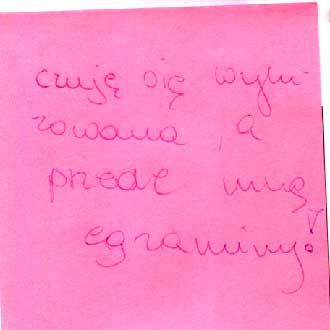 czuję się wyżu-
rowana, a
przede mną
egzaminy!